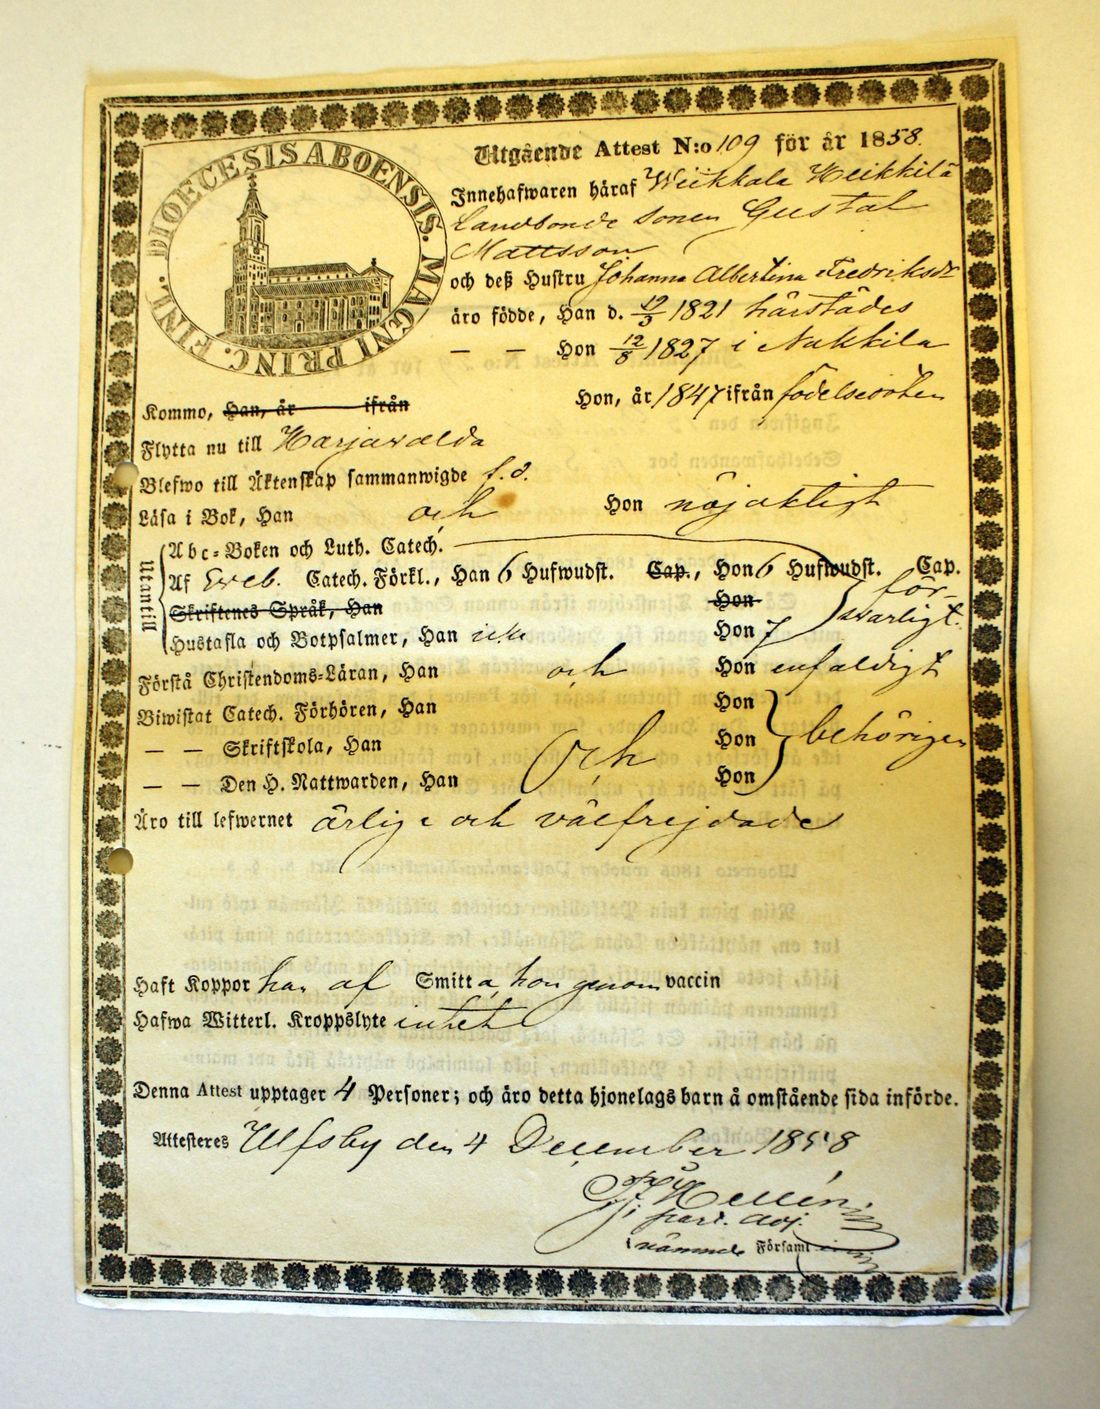 DIOECESIS ABOENSIS. MAGNI PRINC. FINL.
Utgående Attest N:o 109 för år 1858.
Innehafwaren häraf Wiikkala Heikkilä
Landbonde sonen Gustaf
Mattsson
och deß Hustru Johanna Albertina Fredriksdr
äro födde, Han d. 12/3 1821 härstädes
— — Hon 12/8 1827 i Nakkila
Kommo, Han, år ifrån Hon, år 1847 ifrån födelseorten
Flytta nu till Harjawalda
Blefwo till Äktenskap sammanwigde f. d.
Läsa i Bok, Han och Hon nöjaktigt
Utantill
Abc-Boken och Luth. Catech.
Af Sveb. Catech. Förkl., Han 6 Hufwudst. Cap., Hon 6 Hufwudst. Cap.
för-
Skriftenes Språk, Han Hon
swarligt.
Hustafla och Botpsalmer, Han Hon 7
Förstå Christendoms-Läran, Han och Hon enfaldigt
Biwistat Catech. Förhören, Han Hon
— — Skriftskola, Han och Hon behörigen
— — Den H. Nattwarden, Han Hon
Äro till lefwernet ärlige och välfrejdade
Haft Koppor han af Smitta, hon genom vaccin
Hafwa Witterl. Kroppslyte intet
Denna Attest upptager 4 Personer; och äro detta hjonelags barn å omstående sida införde.
Attesteres Ulfsby den 4 December 1858
Hellén
past. adj.
nämnde Församl